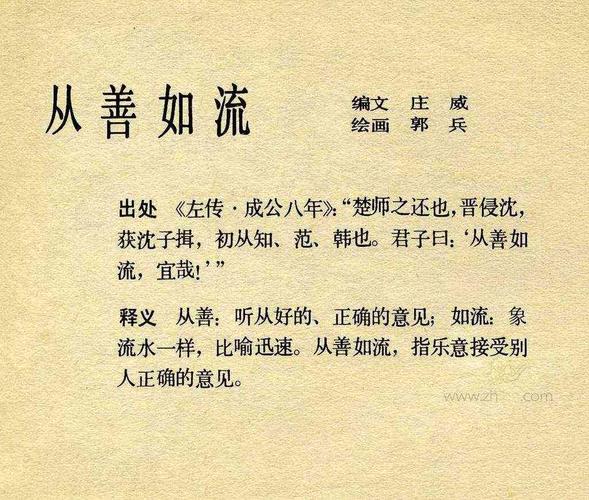 从善如流
编文 庄威
绘画 郭兵
出处 《左传·成公八年》：“楚师之还也，晋侵沈，
获沈子揖，初从知、范、韩也。君子曰：‘从善如
流，宜哉！’”
释义 从善：听从好的、正确的意见；如流：象
流水一样，比喻迅速。从善如流，指乐意接受别
人正确的意见。